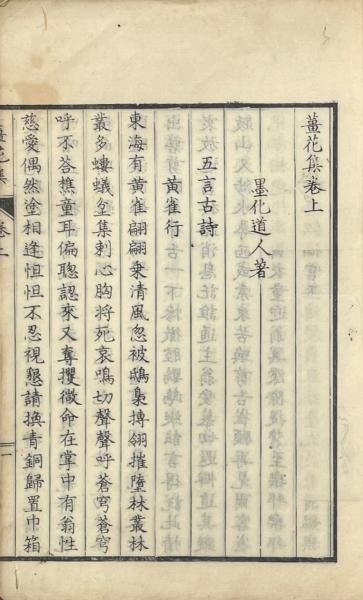 薑花集卷上
墨化道人著
五言古詩
黃雀行
東海有黃雀翩翩乘清風忽被鴟梟搏翎摧墮林叢林
叢多螻蟻坌集刺心胸將死哀鳴切聲聲呼蒼穹蒼穹
呼不答樵童耳偏聰認來又奪攫微命在掌中有翁性
慈愛偶然塗相逢怛怛不忍視懇請換青銅歸置巾箱
花集
卷上
一